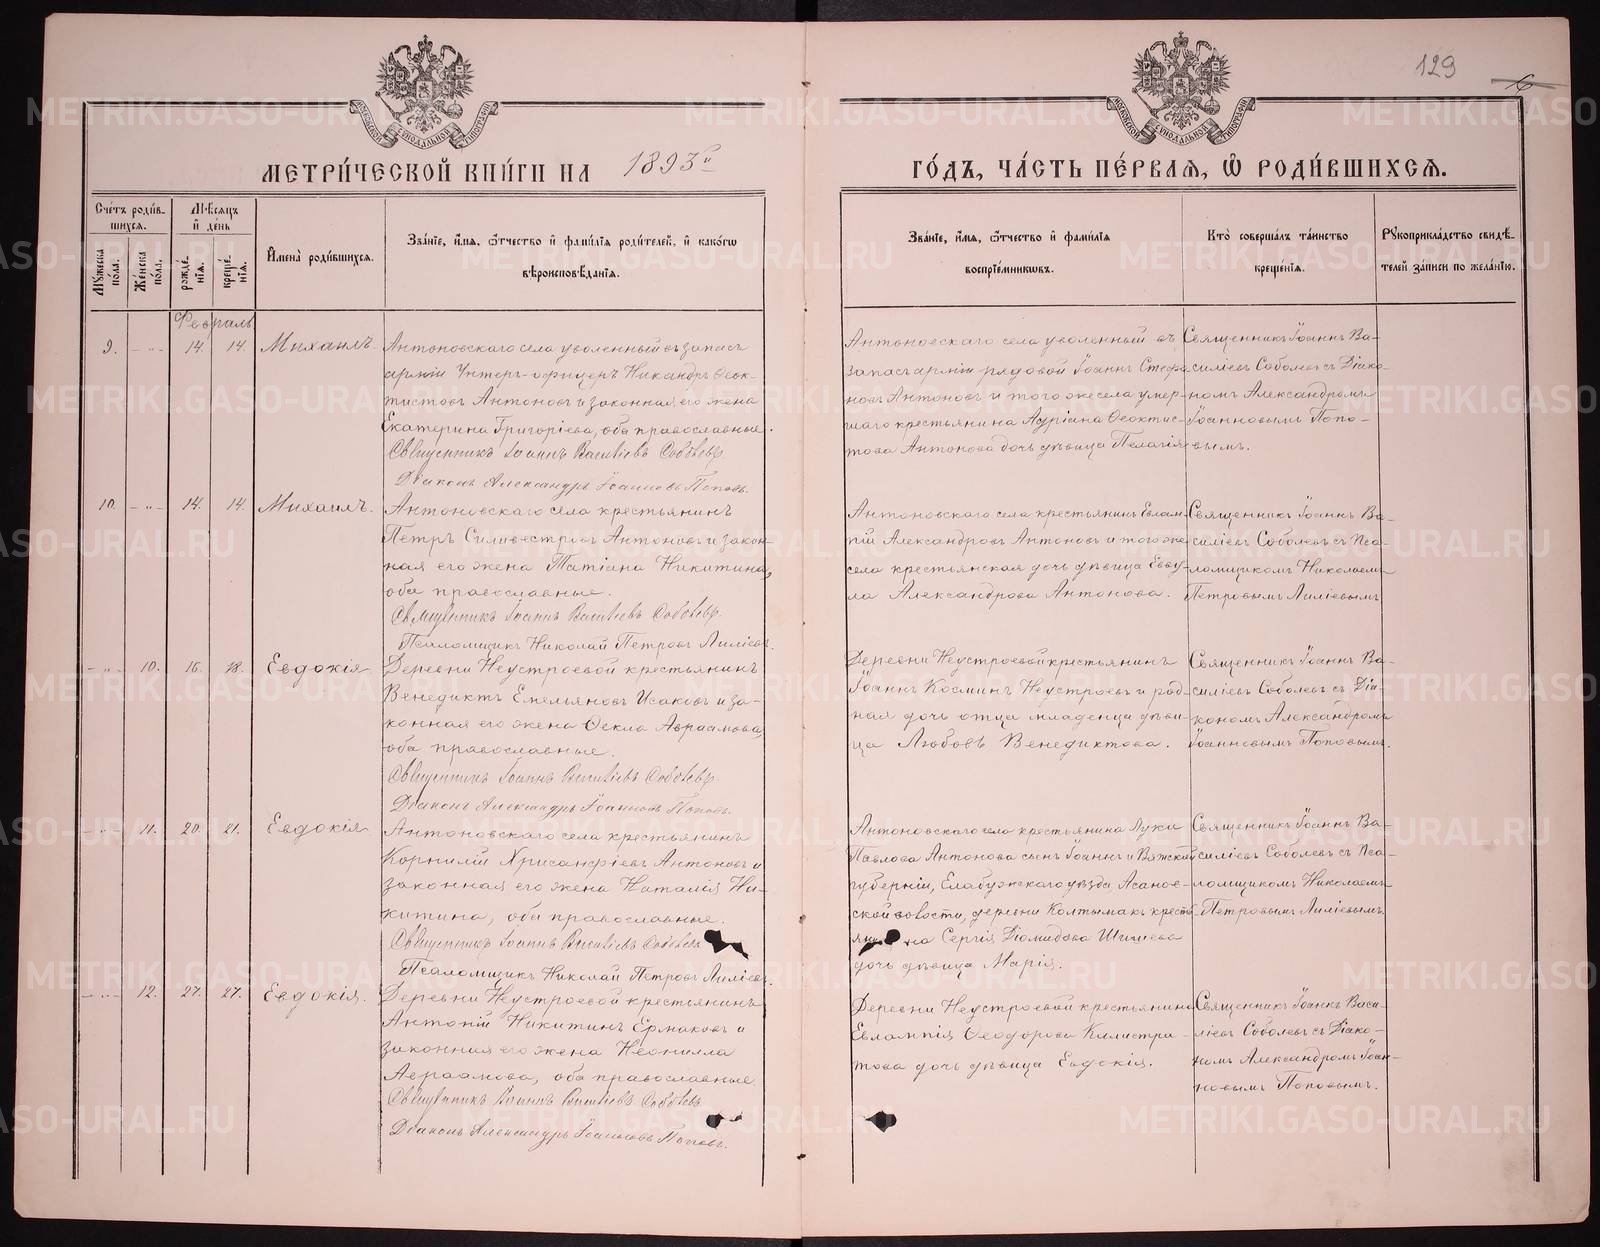 129
МЕТРИ́ЧЕСКОЙ КНИ́ГИ НА 1893й
ГО́ДЪ, ЧА́СТЬ ПЕ́РВАЯ, Ѽ РОДИ́ВШИХСЯ.
Сче́тъ роди́в-
шихся.
Мꙋжеска пола.
Же́нска по́ла.
Мѣ́сяцъ
и҆ де́нь
рожде́-
нїя.
креще́-
нїя.
И҆мена̀ роди́вшихся.
Зва́нїе, и҆́мя, ѻ҆́тчество и҆ фами́лїя роди́телей, и҆ како́гѡ
вѣроисповѣ́данїя.
Зва́нїе, и҆́мя, ѻ҆́тчество и҆ фами́лїя
воспрїе́мниковъ.
Кто̀ соверша́лъ та́инство
креще́нїя.
Рꙋкоприкла́дство свидѣ́-
телей за́писи по жела́нїю.
Февраль
9. — „ — 14. 14. Михаилъ.
Антоновскаго села уволенный въ запасъ
арміи Унтеръ-офицеръ Никандръ Ѳеок-
тистовъ Антоновъ и законная его жена
Екатерина Григоріева, оба православные.
Священникъ Іоаннъ Василіевъ Соболевъ
Діаконъ Александръ Іоанновъ Поповъ.
Антоновскаго села уволенный въ
запасъ арміи рядовой Іоаннъ Стефа-
новъ Антоновъ и того же села умер-
шаго крестьянина Адріана Ѳеоктис-
това Антонова дочь дѣвица Пелагія
Священникъ Іоаннъ Ва-
силіевъ Соболевъ съ Діако-
номъ Александромъ
Іоанновымъ Попо-
вымъ.
10. — „ — 14. 14. Михаилъ.
Антоновскаго села крестьянинъ
Петръ Силивестровъ Антоновъ и закон-
ная его жена Татіана Никитина,
оба православные.
Священникъ Іоаннъ Василіевъ Соболевъ.
Псаломщикъ Николай Петровъ Лиліевъ.
Антоновскаго села крестьянинъ Евлам-
пій Александровъ Антоновъ и того же
села крестьянская дочь дѣвица Евву-
ла Александрова Антонова.
Священникъ Іоаннъ Ва-
силіевъ Соболевъ съ Пса-
ломщикомъ Николаемъ
Петровымъ Лиліевымъ
— „ — 10. 16. 18. Евдокія
Деревни Неустроевой крестьянинъ
Венедиктъ Емельяновъ Исаковъ и за-
конная его жена Ѳекла Авраамова,
оба православные.
Священникъ Іоаннъ Василіевъ Соболевъ.
Діаконъ Александръ Іоанновъ Поповъ.
Деревни Неустроевой крестьянинъ
Іоаннъ Косминъ Неустроевъ и род-
ная дочь отца младенца дѣви-
ца Любовь Венедиктова.
Священникъ Іоаннъ Ва-
силіевъ Соболевъ съ Діа-
кономъ Александромъ
Іоанновымъ Поповымъ.
— „ — 11. 20. 21. Евдокія
Антоновскаго села крестьянинъ
Корнилій Хрисанфіевъ Антоновъ и
законная его жена Наталія Ни-
китина, оба православные.
Священникъ Іоаннъ Василіевъ Соболевъ
Псаломщикъ Николай Петровъ Лиліевъ.
Антоновскаго села крестьянина Луки
Павлова Антонова сынъ Іоаннъ и Вятской
губерніи, Елабужскаго уѣзда Асанов-
ской волости, деревни Колтымакъ кресть
янина Сергія Діомидова Шишева
дочь дѣвица Марія.
Священникъ Іоаннъ Ва-
силіевъ Соболевъ съ Пса-
ломщикомъ Николаемъ
Петровымъ Лиліевымъ.
— „ — 12. 27. 27. Евдокія.
Деревни Неустроевой крестьянинъ
Антоній Никитинъ Ермаковъ и
законная его жена Неонилла
Авраамова, оба православные
Священникъ Іоаннъ Василіевъ Соболевъ
Діаконъ Александръ Іоанновъ Поповъ.
Деревни Неустроевой крестьянина
Евлампія Ѳеодорова Калистра-
това дочь дѣвица Евдокія.
Священникъ Іоаннъ Васи-
ліевъ Соболевъ съ Діако-
номъ Александромъ Іоан-
новымъ Поповымъ.